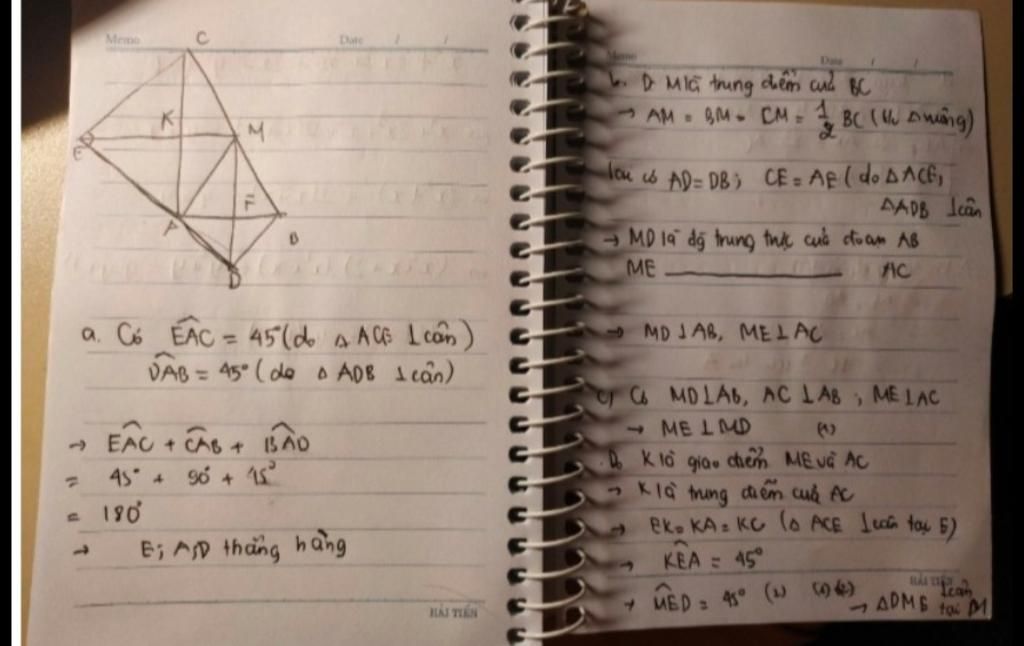 Memo Date / /
C
K
M
E
F
A
B
D
a. Có EAC = 45° (do Δ ACE ⊥ cân)
DAB = 45° (do Δ ADB ⊥ cân)
→ EAC + CAB + BAD
= 45° + 90° + 45°
= 180°
→ E; A, D thẳng hàng
HẢI TIẾN
Memo Date / /
b. D M là trung điểm cuả BC
→ AM = BM = CM = 1/2 BC ( Δ vuông)
lại có AD = DB; CE = AE (do Δ ACE,
Δ ADB ⊥ cân
→ MD là đg trung trực cuả đoạn AB
ME ——— AC
→ MD ⊥ AB, ME ⊥ AC
c) Có MD ⊥ AB, AC ⊥ AB ; ME ⊥ AC
→ ME ⊥ MD (1)
Do K là giao điểm ME và AC
→ K là trung điểm cuả AC
→ EK = KA = KC (Δ ACE ⊥ cân tại E)
→ KEA = 45°
HẢI TIẾN
→ MED = 45° (2) (1) (2) → Δ DME ⊥ cân tại M